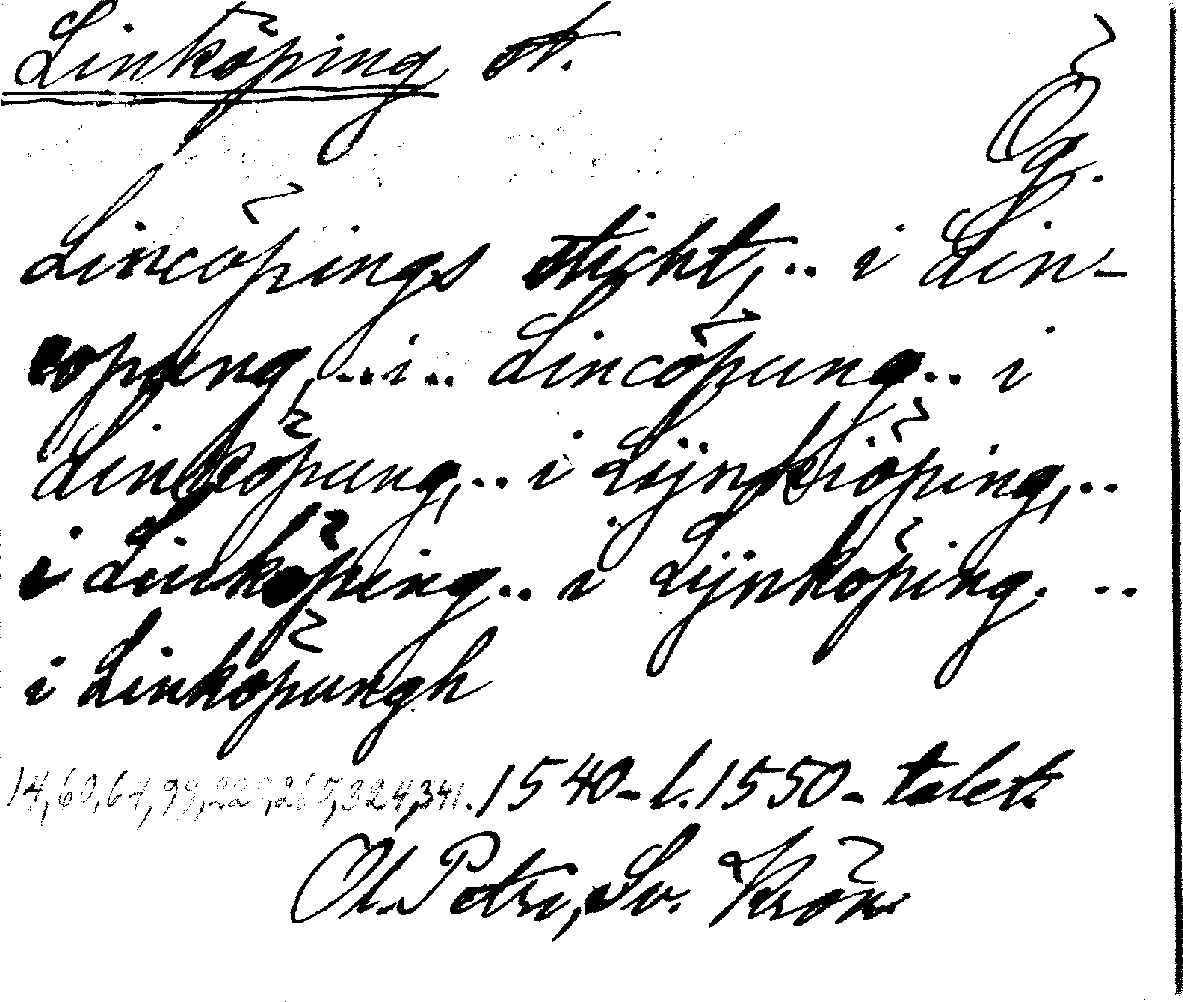 Linköping st.
Ög.
Lincöpings sticht,.. i Lin-
copung,..i.. Lincöpung.. i
Linköpung,.. i Lÿnkiöping,..
i Linköping.. i Lÿnköping. ..
i Linköpungh
14, 60, 64, 99, 229, 265, 324, 341. 1540- l. 1550-talet.
Ol. Petri, Sv. Krön.